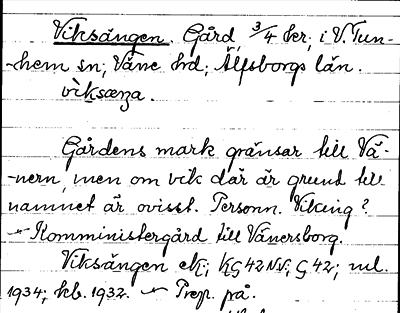 Viksängen. Gård, 3/4 hr, i V. Tun-
-hem sn; Väne hd; Älfsborgs län.
viksæŋa.
Gårdens mark gränsar till Vä-
-nern, men om vik där är grund till
namnet är ovisst. Personn. Viking?
~ Komministergård till Vänersborg.
Viksängen ek; KG 42 NV; G 42; ml.
1934; kb. 1932. ~ Prep. på.